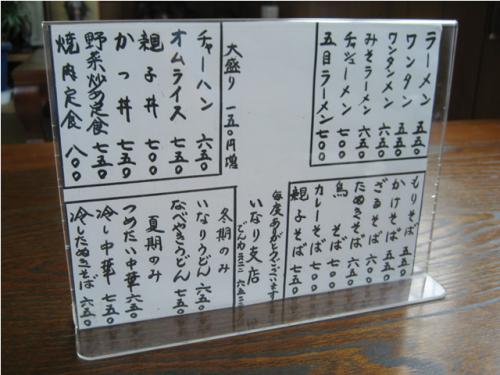 ラーメン 五五〇
ワンタン 五五〇
ワンタンメン 六五〇
みそラーメン 六五〇
チャシューメン 七〇〇
五目ラーメン 七〇〇
大盛り 一五〇円増
チャーハン 六五〇
オムライス 七五〇
親子丼 七〇〇
かつ丼 七五〇
野菜炒め定食 七五〇
焼肉定食 八〇〇
もりそば 五五〇
かけそば 五五〇
ざるそば 六五〇
たぬきそば 六五〇
鳥そば 七〇〇
カレーそば 七〇〇
親子そば 七〇〇
毎度ありがとうございます
いなり支店
でんわ
冬期のみ
いなりうどん 六五〇
なべやきうどん 七五〇
夏期のみ
つめたい中華 六五〇
冷し中華 七五〇
冷したぬきそば 六五〇